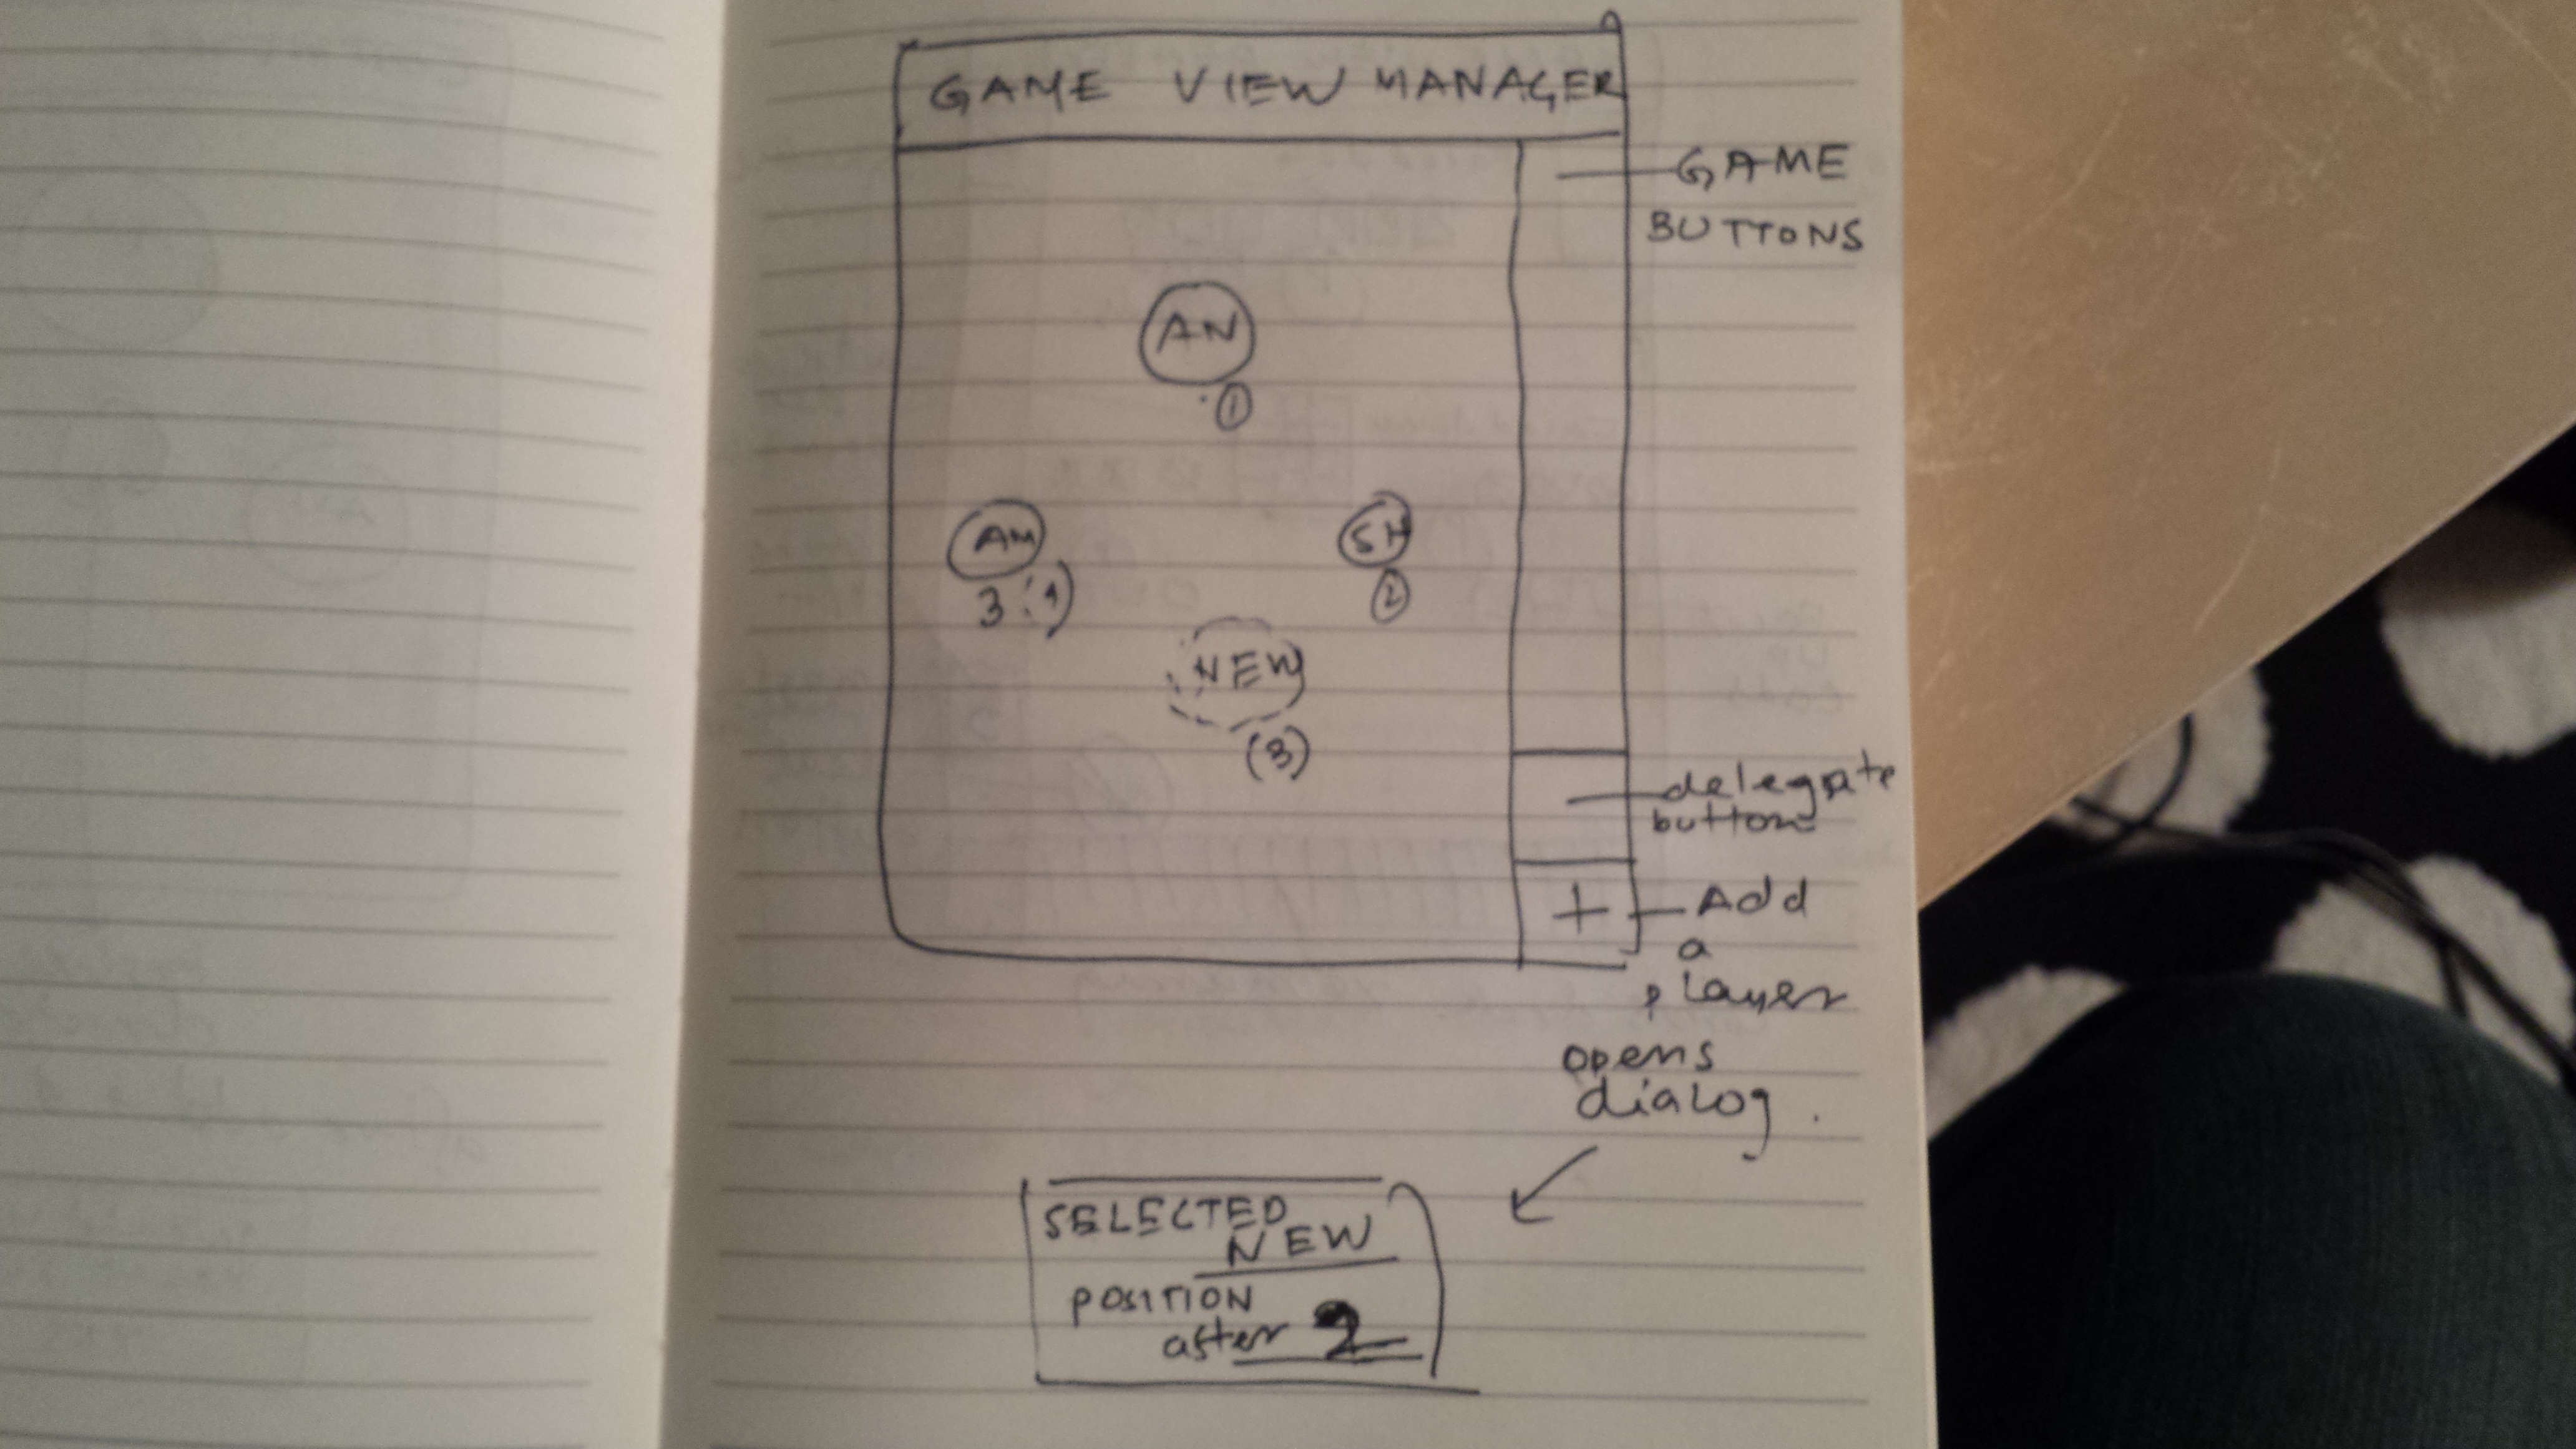 GAME VIEW MANAGER
GAME
BUTTONS
AN
1
AM
3 (4)
SH
2
NEW
(3)
delegate
buttons
+
Add
a
player
opens
dialog.
SELECTED
NEW
POSITION
after 2